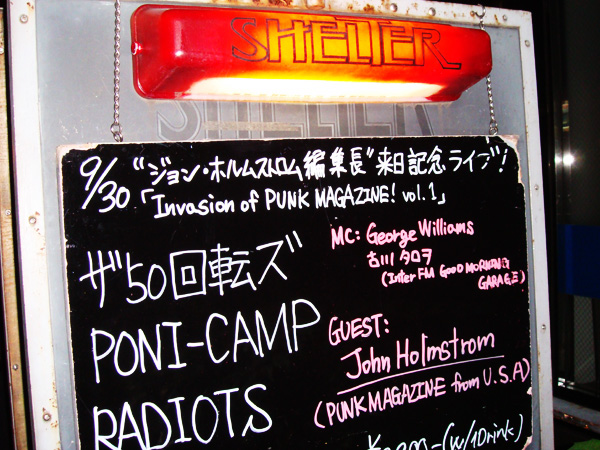 SHELTER
SHELTER
9/30 "ジョン・ホルムストロム編集長"来日記念ライブ"!
「Invasion of PUNK MAGAZINE! vol.1」
ザ50回転ズ
PONI-CAMP
RADIOTS
MC: George Williams
古川タロヲ
(Inter FM GOOD MORNING
GARAGE)
GUEST:
John Holmstrom
(PUNK MAGAZINE from U.S.A)
(w/1Drink)